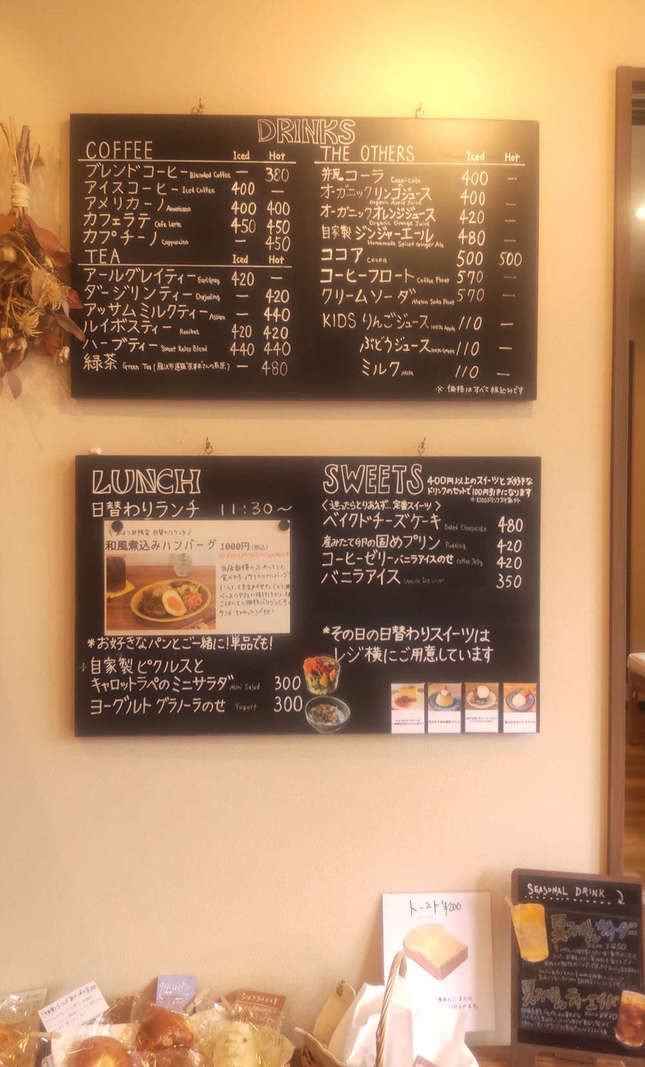 DRINKS
COFFEE Iced Hot
ブレンドコーヒー Blended Coffee — 380
アイスコーヒー Iced Coffee 400 —
アメリカーノ Americano 400 400
カフェラテ Cafe Latte 450 450
カプチーノ Cappuccino — 450
TEA
アールグレイティー Earlgrey 420 —
ダージリンティー Darjeeling — 420
アッサムミルクティー Assam — 440
ルイボスティー Rooibos 420 420
ハーブティー Sweet Relax Blend 440 440
緑茶 Green Tea — 480
THE OTHERS Iced Hot
コーラ Coca-cola 400 —
オーガニックリンゴジュース Organic Apple Juice 400 —
オーガニックオレンジジュース Organic Orange Juice 420 —
自家製ジンジャーエール Homemade Spiced Ginger Ale 480 —
ココア Cocoa 500 500
コーヒーフロート Coffee Float 570 —
クリームソーダ Melon Soda Float 570 —
KIDS りんごジュース 100% Apple 110 —
ぶどうジュース 110 —
ミルク Milk 110 —
※価格はすべて税込みです
LUNCH
日替わりランチ 11:30〜
和風煮込みハンバーグ 1000円(税込)
*お好きなパンとご一緒に!単品でも!
自家製ピクルスと
キャロットラペのミニサラダ Mini Salad 300
ヨーグルト グラノーラのせ Yogurt 300
SWEETS 400円以上のスイーツとお好きな
ドリンクのセットで100円引きになります
〈迷ったらとりあえず、定番スイーツ〉
ベイクドチーズケーキ Baked Cheesecake 480
産みたて卵の固めプリン Pudding 420
コーヒーゼリーバニラアイスのせ Coffee Jelly 420
バニラアイス Vanilla Ice Cream 350
*その日の日替わりスイーツは
レジ横にご用意しています
トースト ¥200
SEASONAL DRINK